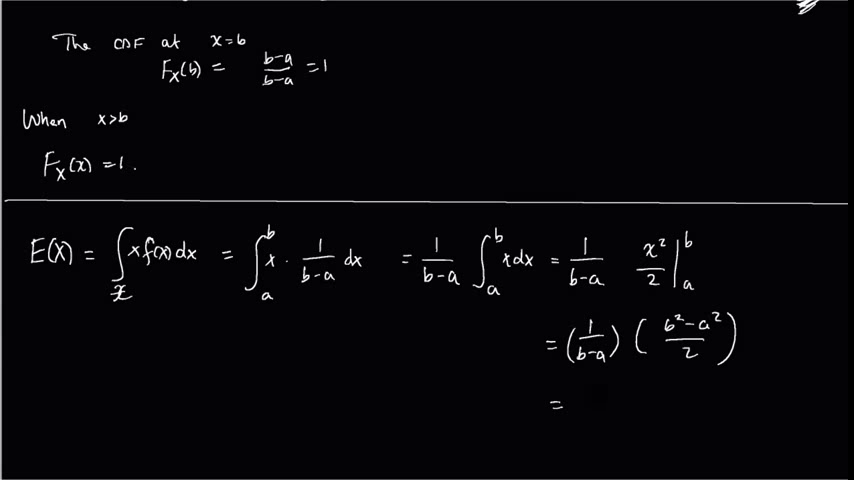 The CDF at x=b
F_X(b) = \frac{b-a}{b-a} = 1
When x>b
F_X(x) = 1.
E(X) = \int_{\mathcal{X}} x f(x) dx = \int_a^b x \cdot \frac{1}{b-a} dx = \frac{1}{b-a} \int_a^b x dx = \frac{1}{b-a} \frac{x^2}{2} \Big|_a^b
= \left(\frac{1}{b-a}\right) \left(\frac{b^2-a^2}{2}\right)
=